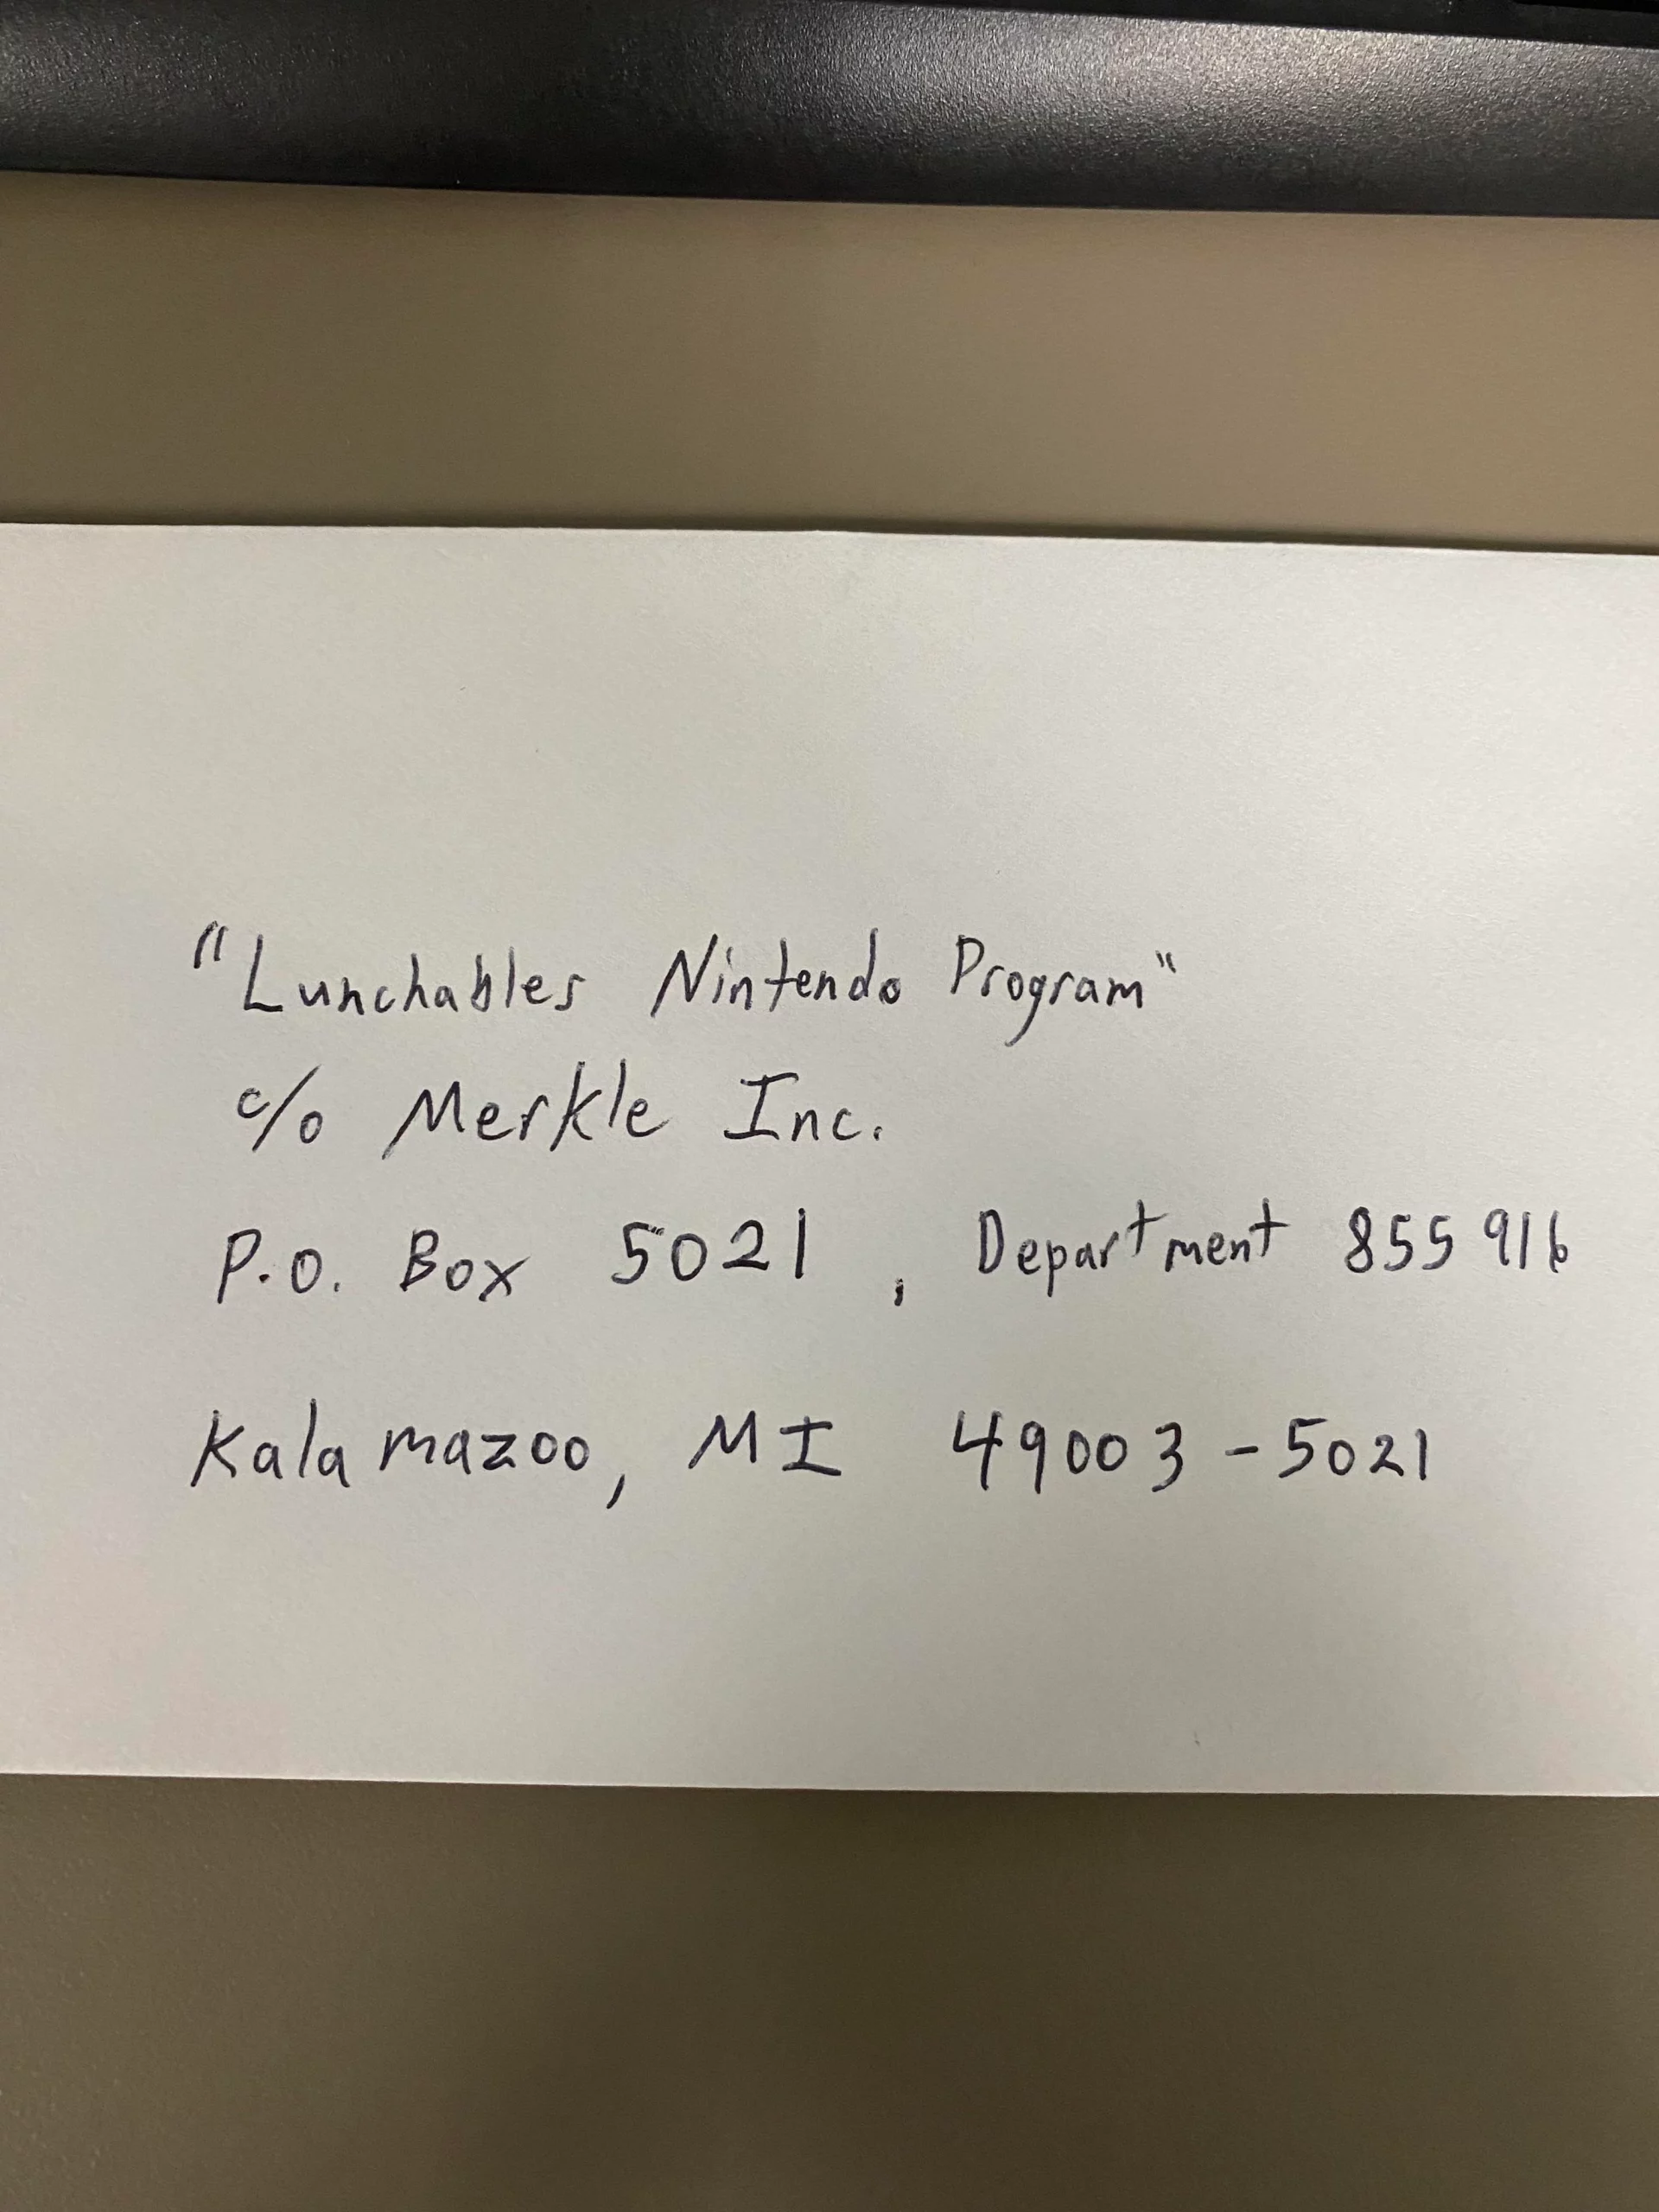 "Lunchables Nintendo Program"
c/o Merkle Inc.
P.O. Box 5021, Department 855916
Kalamazoo, MI 49003-5021